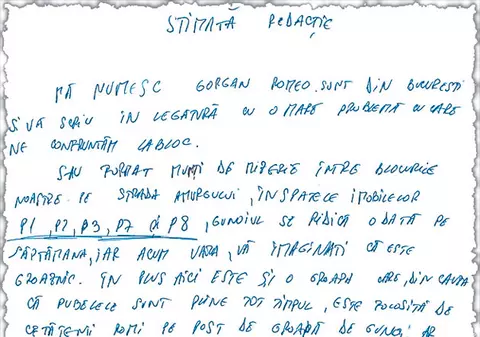 STIMATĂ REDACȚIE
MĂ NUMESC GORGAN ROMEO. SUNT DIN BUCUREȘTI
ȘI VĂ SCRIU ÎN LEGĂTURĂ CU O MARE PROBLEMĂ CU CARE
NE CONFRUNTĂM LA BLOC.
SAU FORMAT MUNȚI DE MIZERIE ÎNTRE BLOCURILE
NOASTRE. PE STRADA AMURGULUI, ÎN SPATELE IMOBILELOR
P1, P2, P3, P7 ȘI P8, GUNOIUL SE RIDICĂ ODATĂ PE
SĂPTĂMÂNĂ, IAR ACUM VARA, VĂ IMAGINAȚI CĂ ESTE
GROAZNIC. ÎN PLUS AICI ESTE ȘI O GROAPĂ CARE, DIN CAUZA
CĂ PUBELELE SUNT PLINE TOT TIMPUL, ESTE FOLOSITĂ DE
CETĂȚENI ROMI PE POST DE GROAPĂ DE GUNOI AR